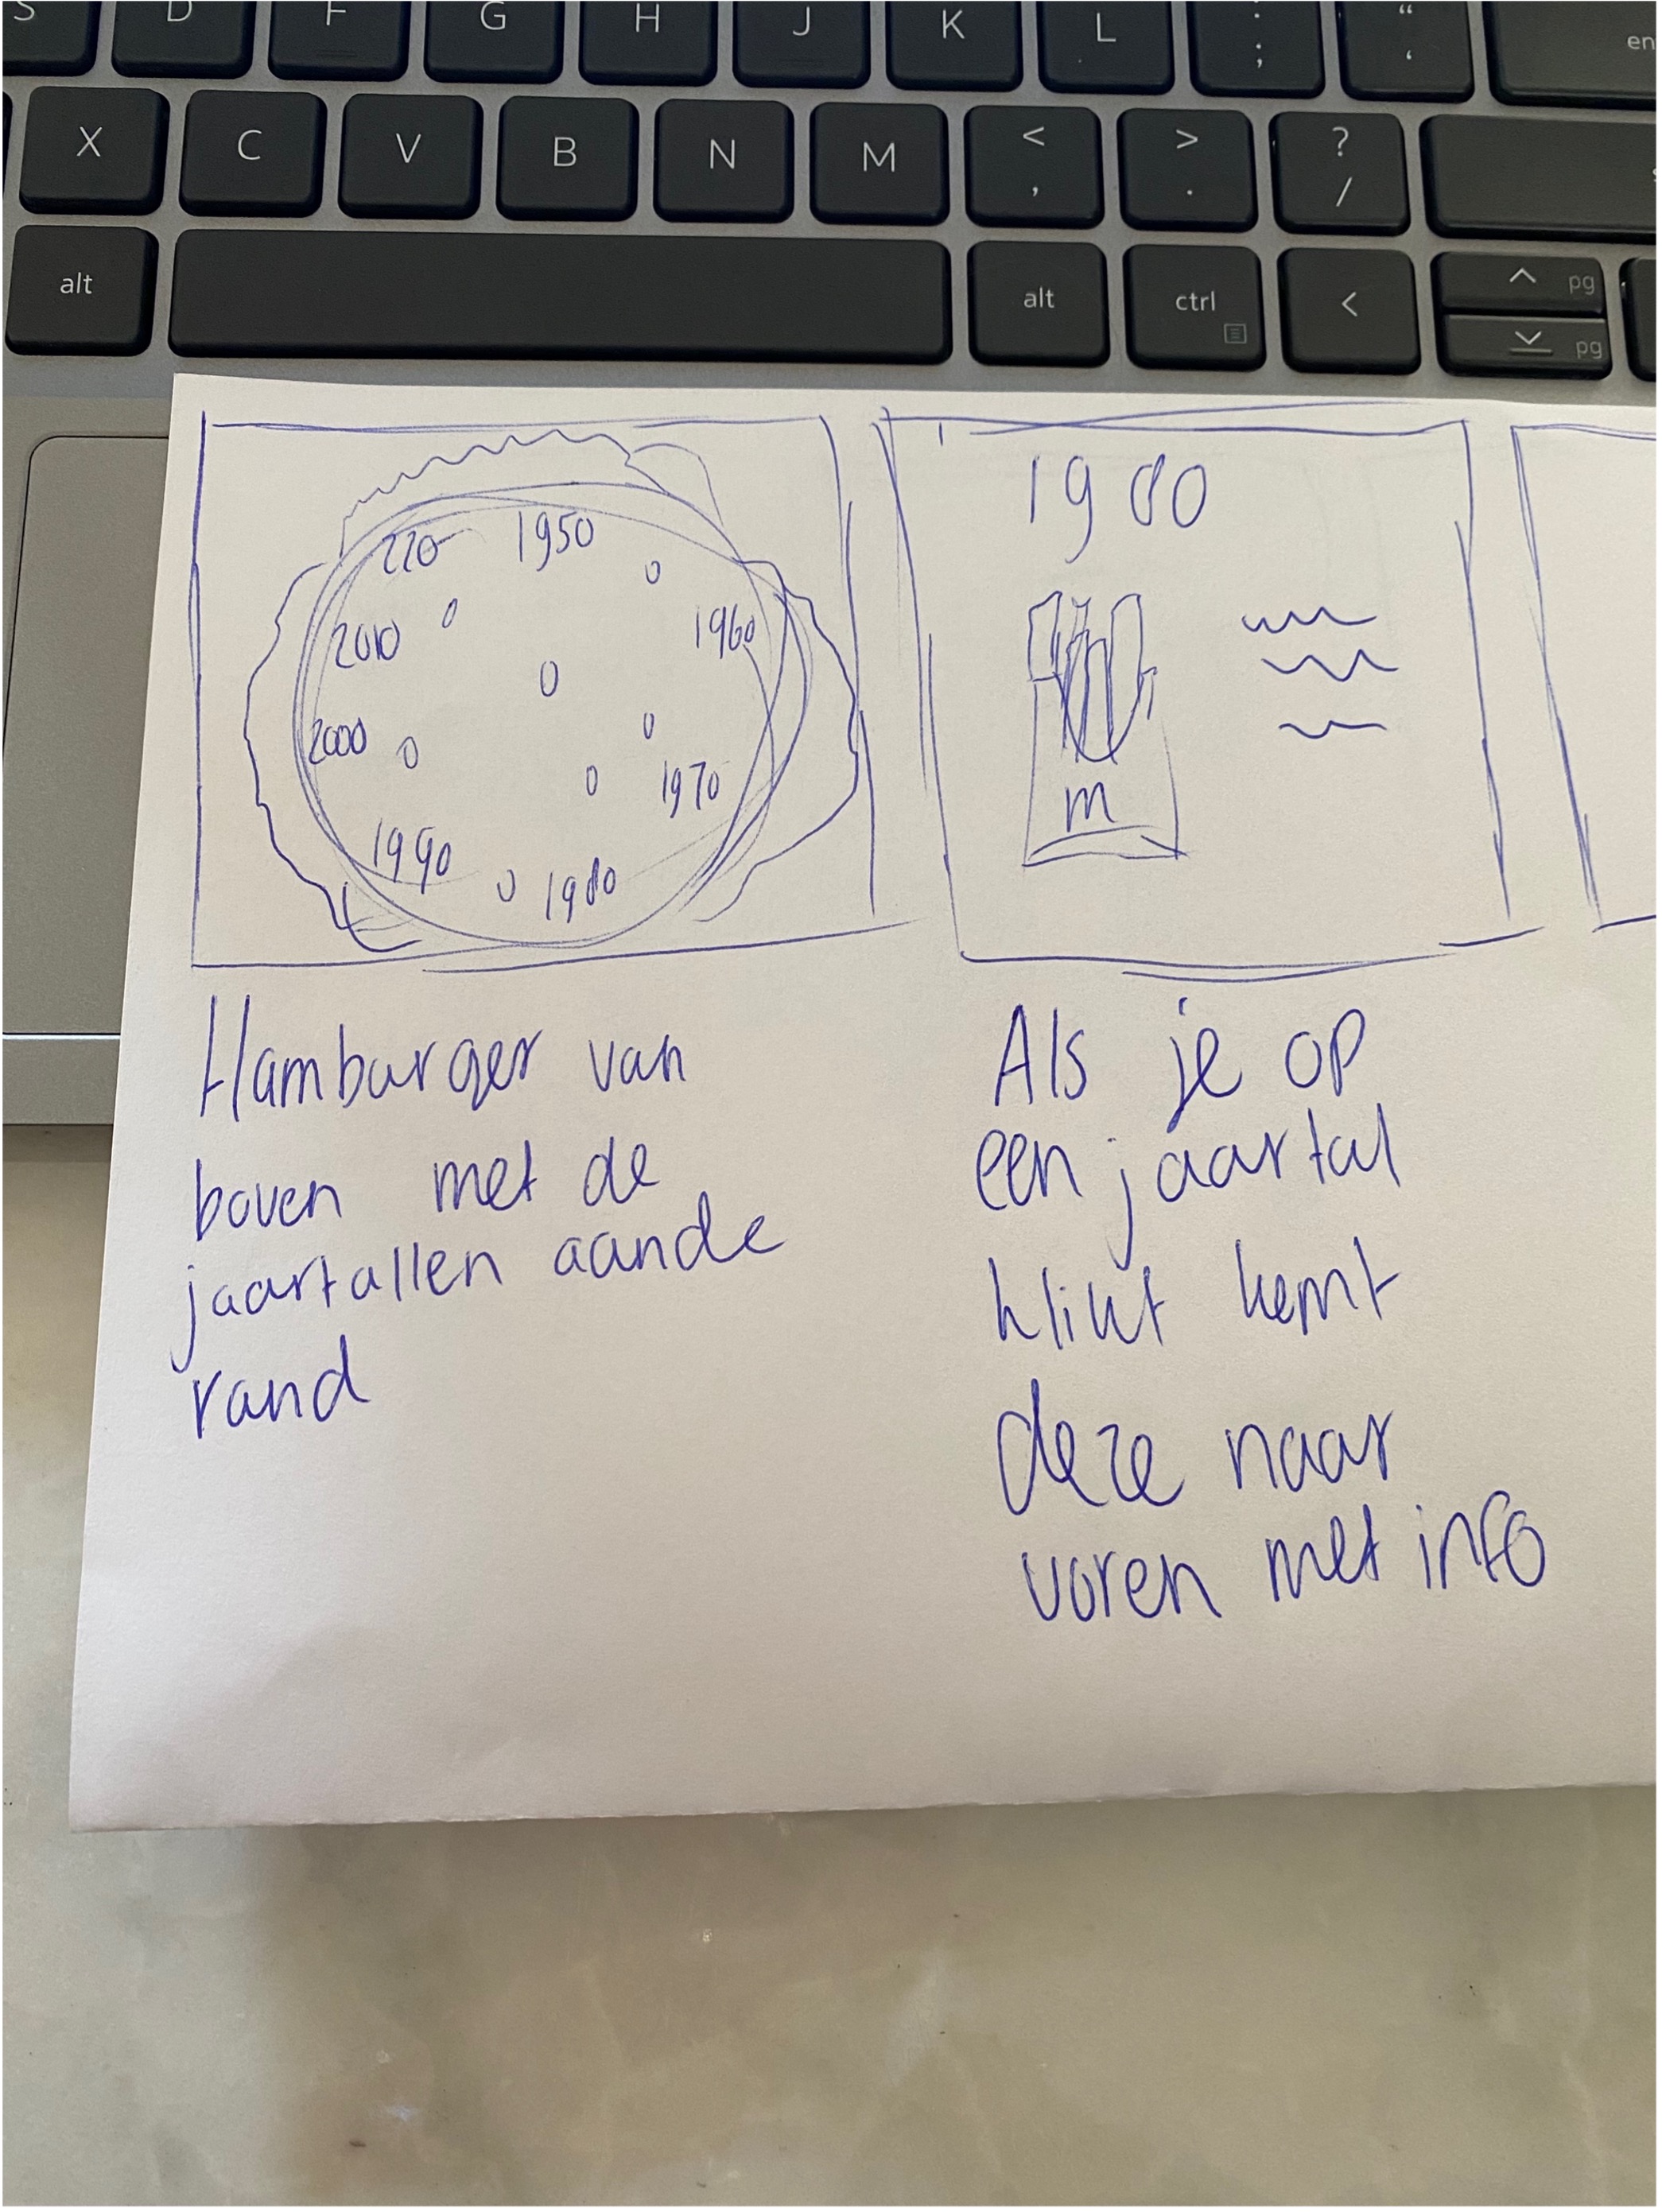 S D F G H J K L : ; “ ‘ en
X C V B N M < , > . ? /
alt alt ctrl < pg
pg
220 1950
2010 1960
2000
1970
1990 1980
1980
m
Hamburger van
boven met de
jaartallen aande
rand
Als je op
een jaartal
klikt kemt
deze naar
voren met info